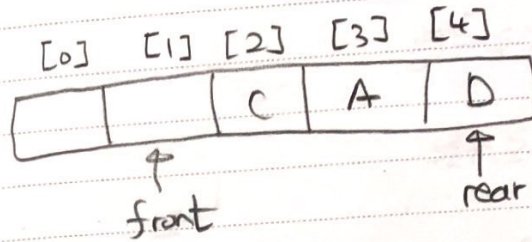 [0] [1] [2] [3] [4]
C A D
front rear